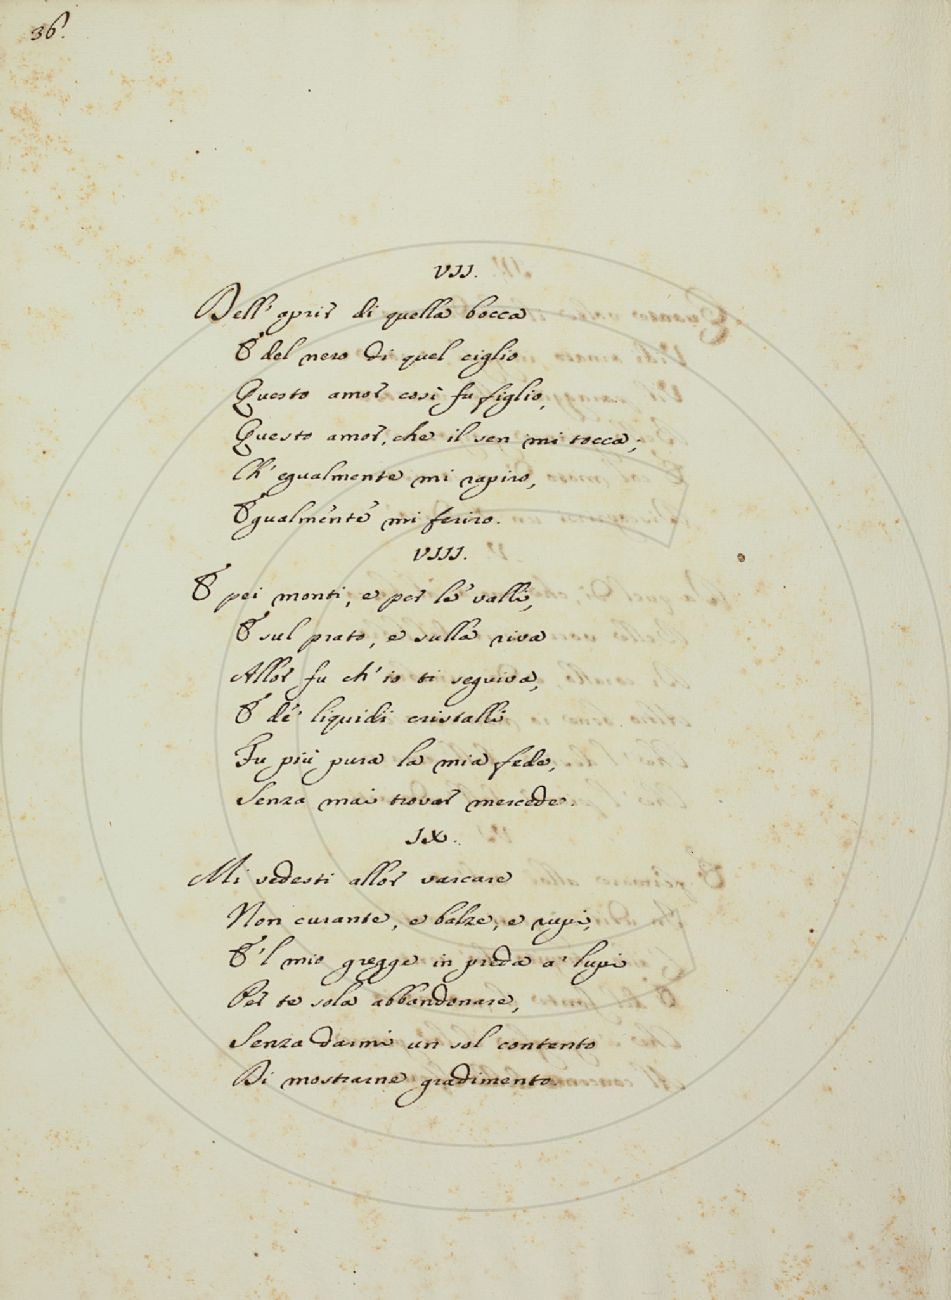 36.
VII.
Dell' aprir di quella bocca
E del nero di quel ciglio
Questo amor così fu figlio,
Questo amor, che il sen mi tocca;
Ch' egualmente mi rapiro,
Egualmente mi feriro.
VIII.
E pei monti, e per le valli,
E sul prato, e sulla riva
Allor fu ch' io ti seguiva,
E de' liquidi cristalli
Fu più pura la mia fede,
Senza mai trovar mercede.
IX.
Mi vedesti allor varcare
Non curante, e balze, e rupi,
E 'l mio gregge in preda a' lupi
Per te sola abbandonare,
Senza darmi un sol contento
Di mostrarne gradimento.